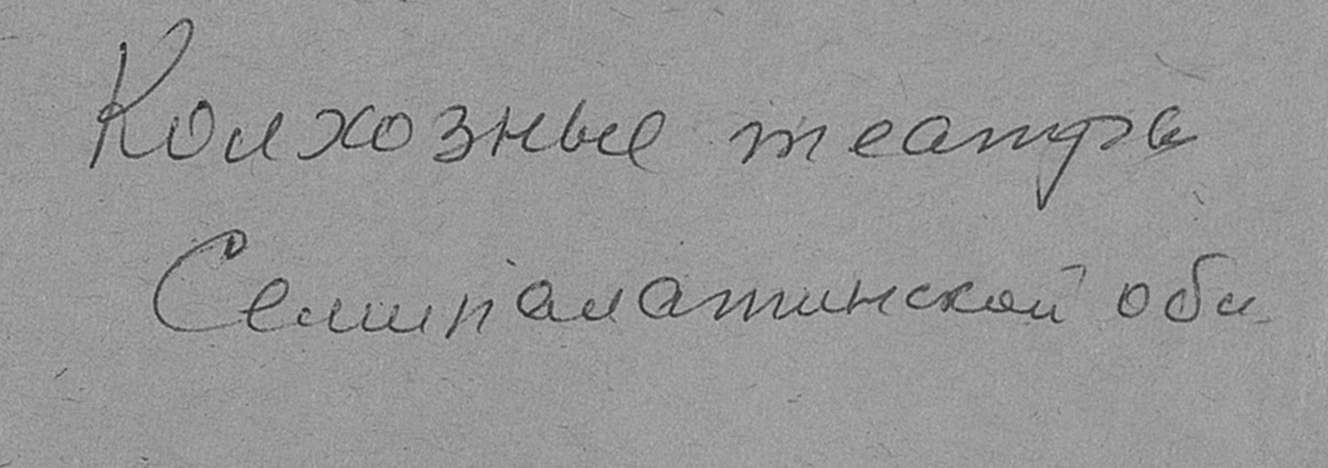 Колхозные театры
Семипалатинской обл.